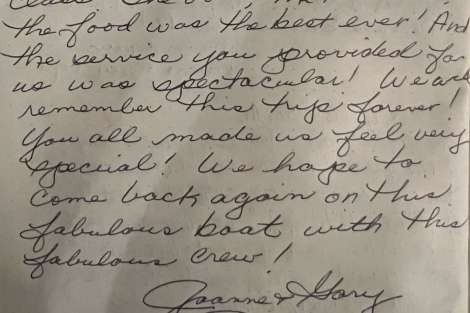 the food was the best ever! And
the service you provided for
us was spectacular! We will
remember this trip forever!
You all made us feel very
special! We hope to
come back again on this
fabulous boat with this
fabulous crew!
Joanne & Gary